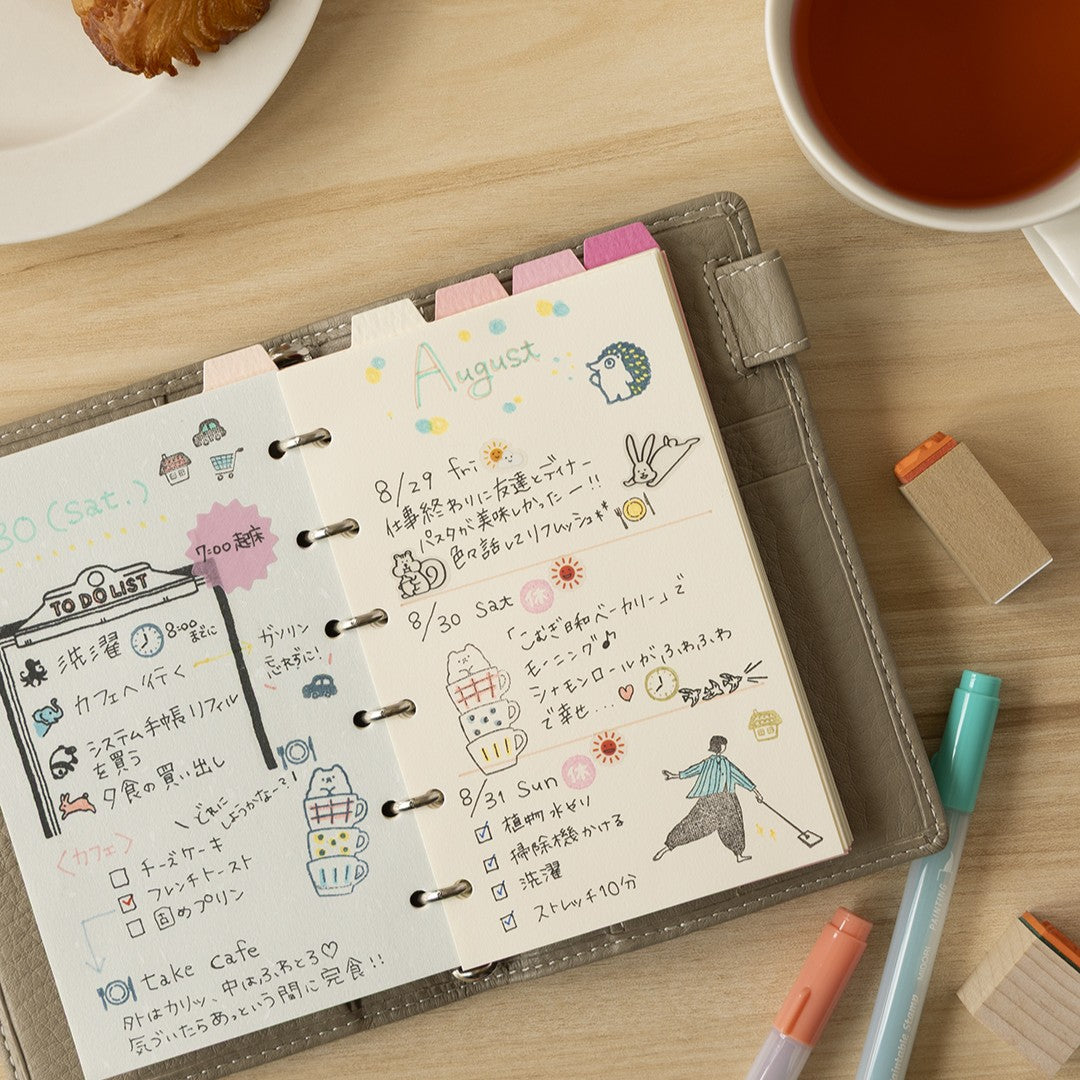 30 (Sat.)
7:00 起床
TO DO LIST
洗濯 8:00までに
カフェへ行く
ガソリン
忘れずに!
システム手帳リフィル
を買う
夕食の買い出し
どれに
しようかな〜?!
〈カフェ〉
チーズケーキ
フレンチトースト
固めプリン
take cafe
外はカリッ、中はふわとろ♡
気づいたらあっという間に完食!!
August
8/29 fri
仕事終わりに友達とディナー
パスタが美味しかったー!!
色々話してリフレッシュ**
8/30 Sat 休
「こむぎ日和ベーカリー」で
モーニング♪
シナモンロールがふわふわ
で幸せ....♡
8/31 Sun 休
植物水やり
掃除機かける
洗濯
ストレッチ10分
PAINTING
MIDORI
Paintable Stamp